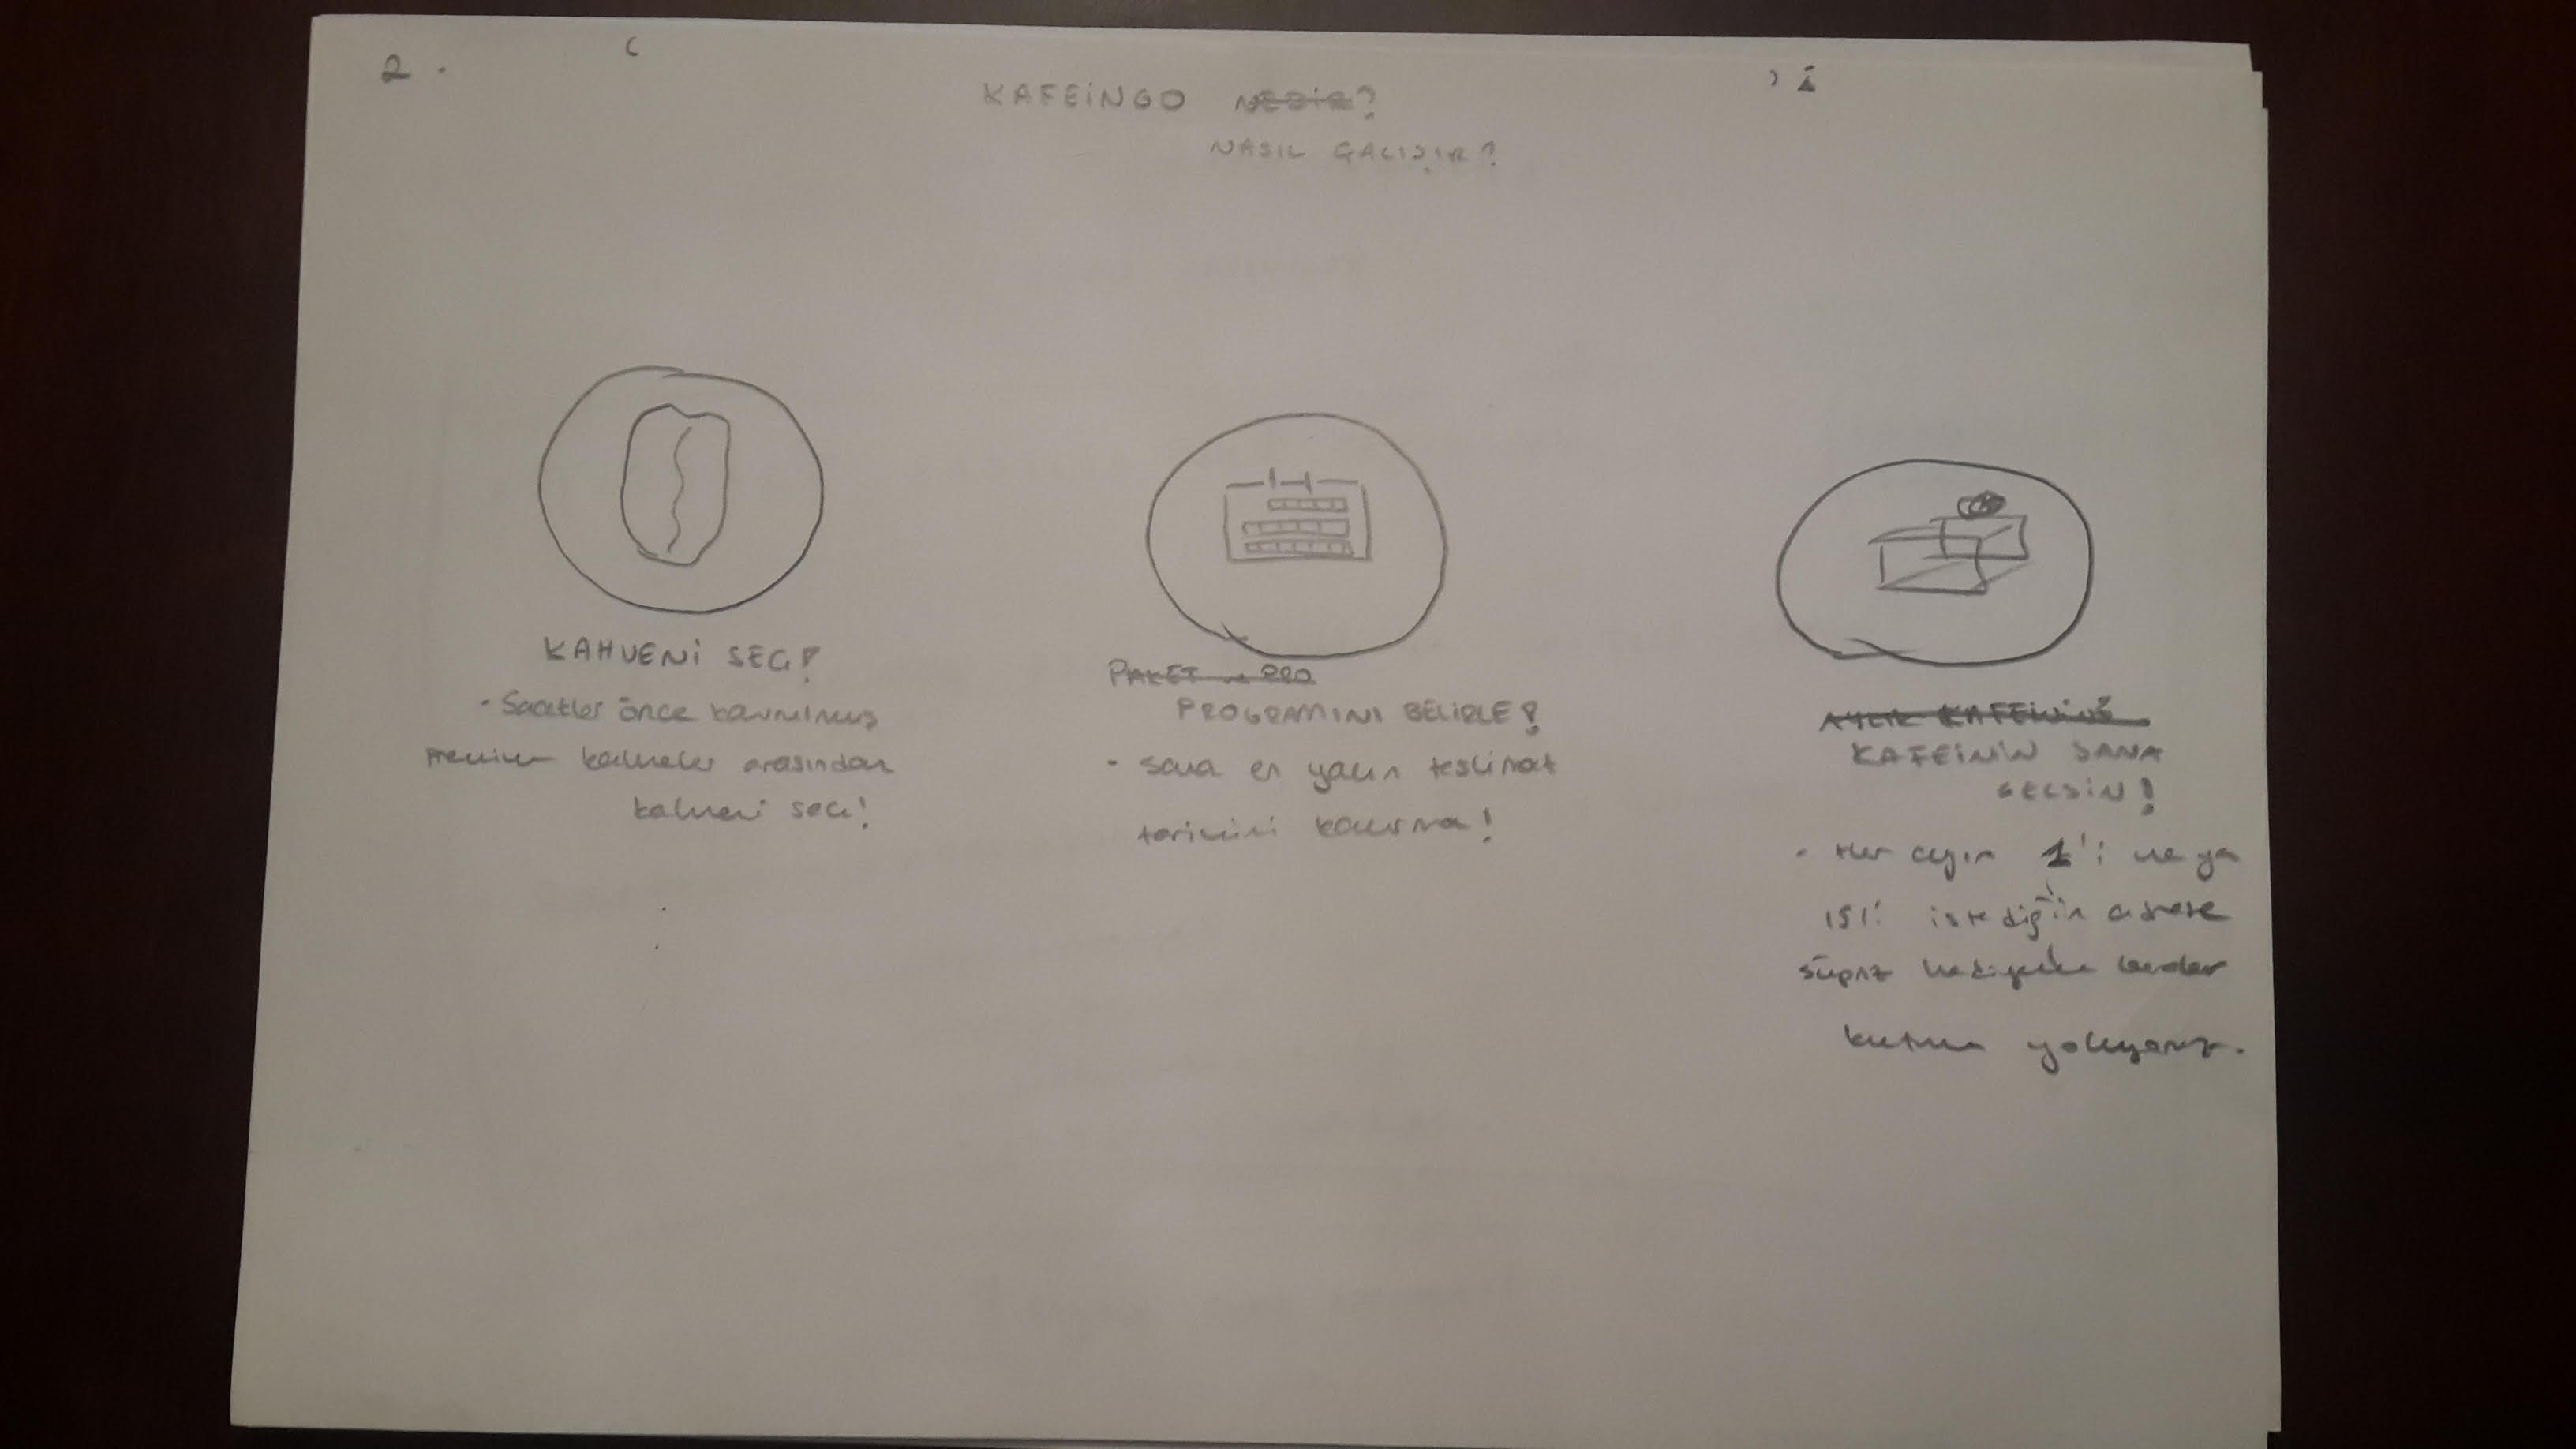 2.
KAFEİNGO NEDİR?
NASIL ÇALIŞIR?
KAHVENİ SEÇ!
- Saatler önce kavrulmuş
Premium kahveler arasından
kahveni seç!
PAKET ve PRO
PROGRAMINI BELİRLE!
- Sana en yakın teslimat
tarihini kaçırma!
AYLIK KAFEİNİN
KAFEİNİN SANA
GELSİN!
- Her ayın 1'i ve ya
15'i istediğin adrese
süpriz hediyelerle beraber
kutunu yolluyoruz.